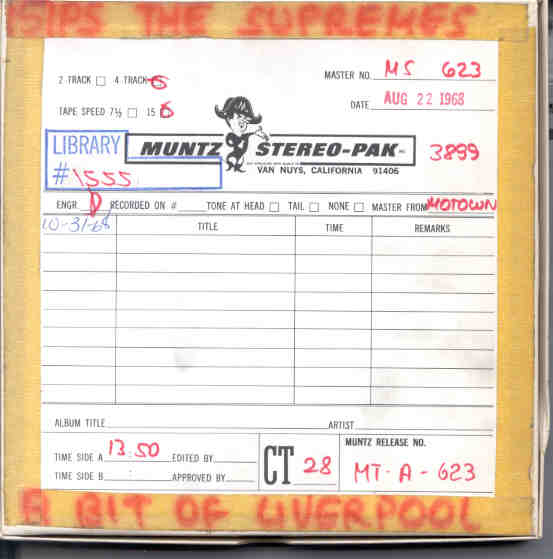 THE SUPREMES
2 TRACK 4 TRACK
MASTER NO. MS 623
TAPE SPEED 7½ 15
DATE AUG 22 1968
LIBRARY
#1555
MUNTZ STEREO-PAK INC.
3899
VAN NUYS, CALIFORNIA 91406
ENGR. D RECORDED ON # TONE AT HEAD TAIL NONE MASTER FROM MOTOWN
10-31-68 TITLE TIME REMARKS
ALBUM TITLE ARTIST
TIME SIDE A 13:50 EDITED BY
TIME SIDE B : APPROVED BY
CT 28
MUNTZ RELEASE NO.
MT-A-623
A BIT OF LIVERPOOL